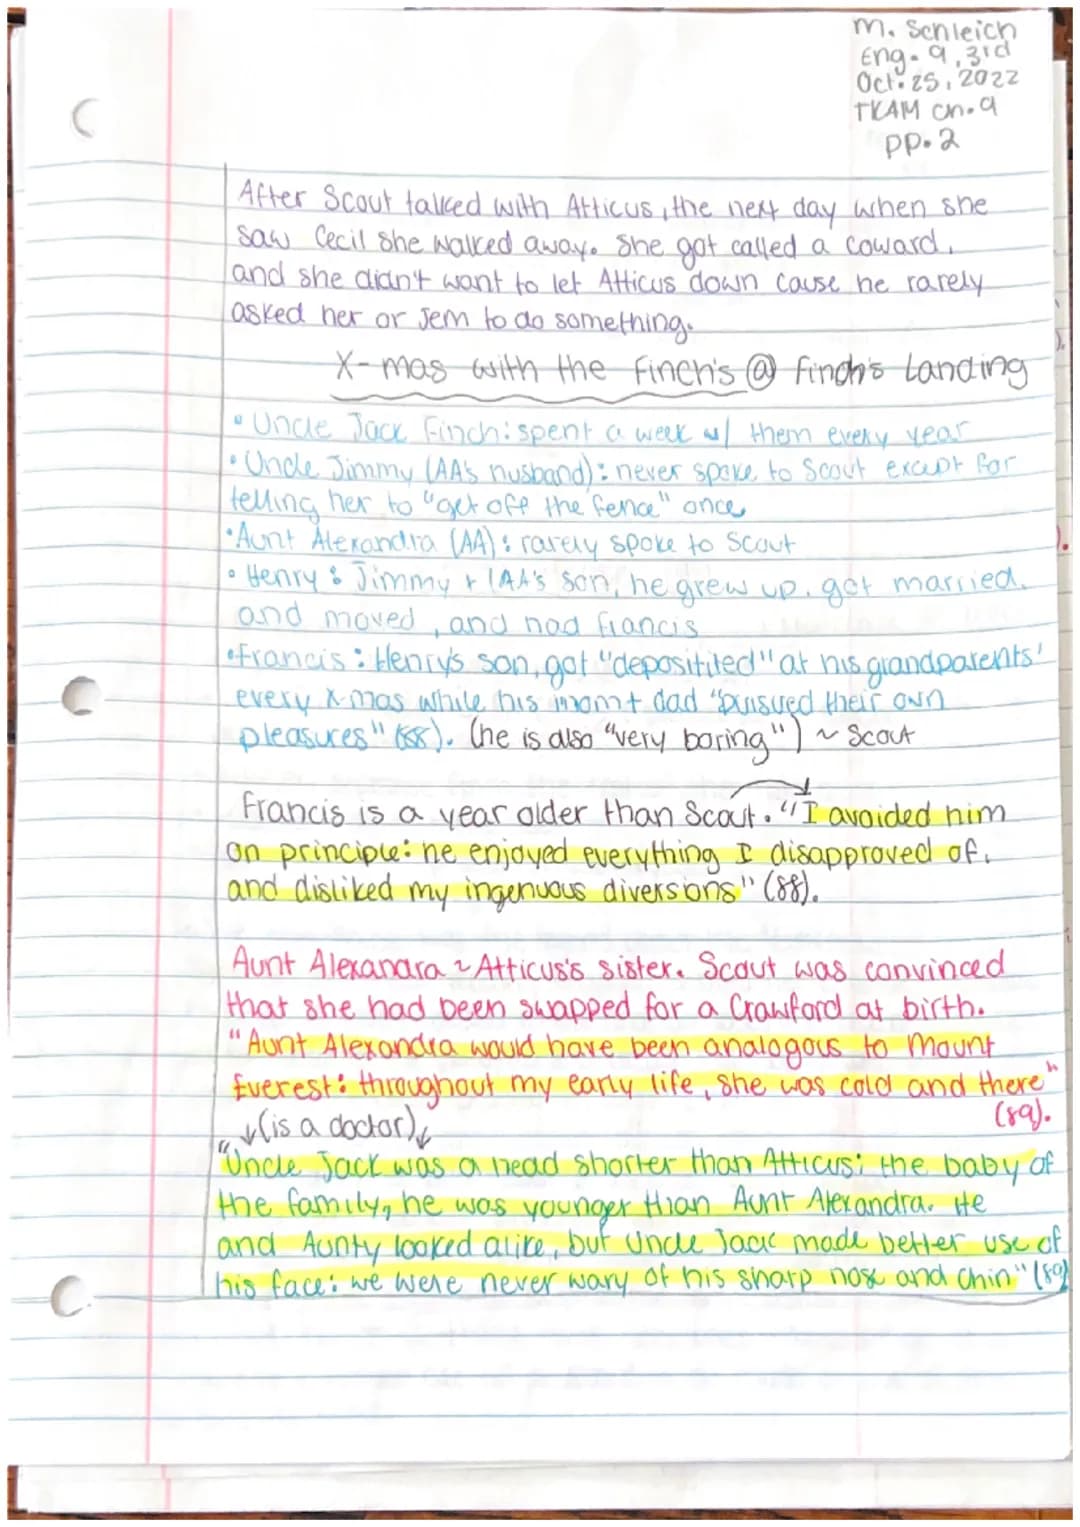 M. Schleich
Eng. 9, 3rd
Oct. 25, 2022
TKAM Ch. 9
pp. 2
After Scout talked with Atticus, the next day when she
saw Cecil she walked away. She got called a coward,
and she didn't want to let Atticus down cause he rarely
asked her or Jem to do something.
X-mas with the Finch's @ Finch's Landing
• Uncle Jack Finch: spent a week w/ them every year
• Uncle Jimmy (AA's husband): never spoke to Scout except for
telling her to "get off the fence" once
• Aunt Alexandra (AA): rarely spoke to Scout
• Henry: Jimmy + (AA's son, he grew up, got married,
and moved, and had Francis
• Francis: Henry's son, got "depositited" at his grandparents'
every X-mas while his mom + dad "pursued their own
pleasures" (88). (he is also "very boring") ~ Scout
Francis is a year older than Scout. "I avoided him
on principle: he enjoyed everything I disapproved of,
and disliked my ingenuous diversions" (88).
Aunt Alexandra ~ Atticus's sister. Scout was convinced
that she had been swapped for a Crawford at birth.
"Aunt Alexandra would have been analogous to Mount
Everest: throughout my early life, she was cold and there"
(89).
↓(is a doctor)↓
"Uncle Jack was a head shorter than Atticus; the baby of
the family, he was younger than Aunt Alexandra. He
and Aunty looked alike, but Uncle Jack made better use of
his face: we were never wary of his sharp nose and chin" (89)